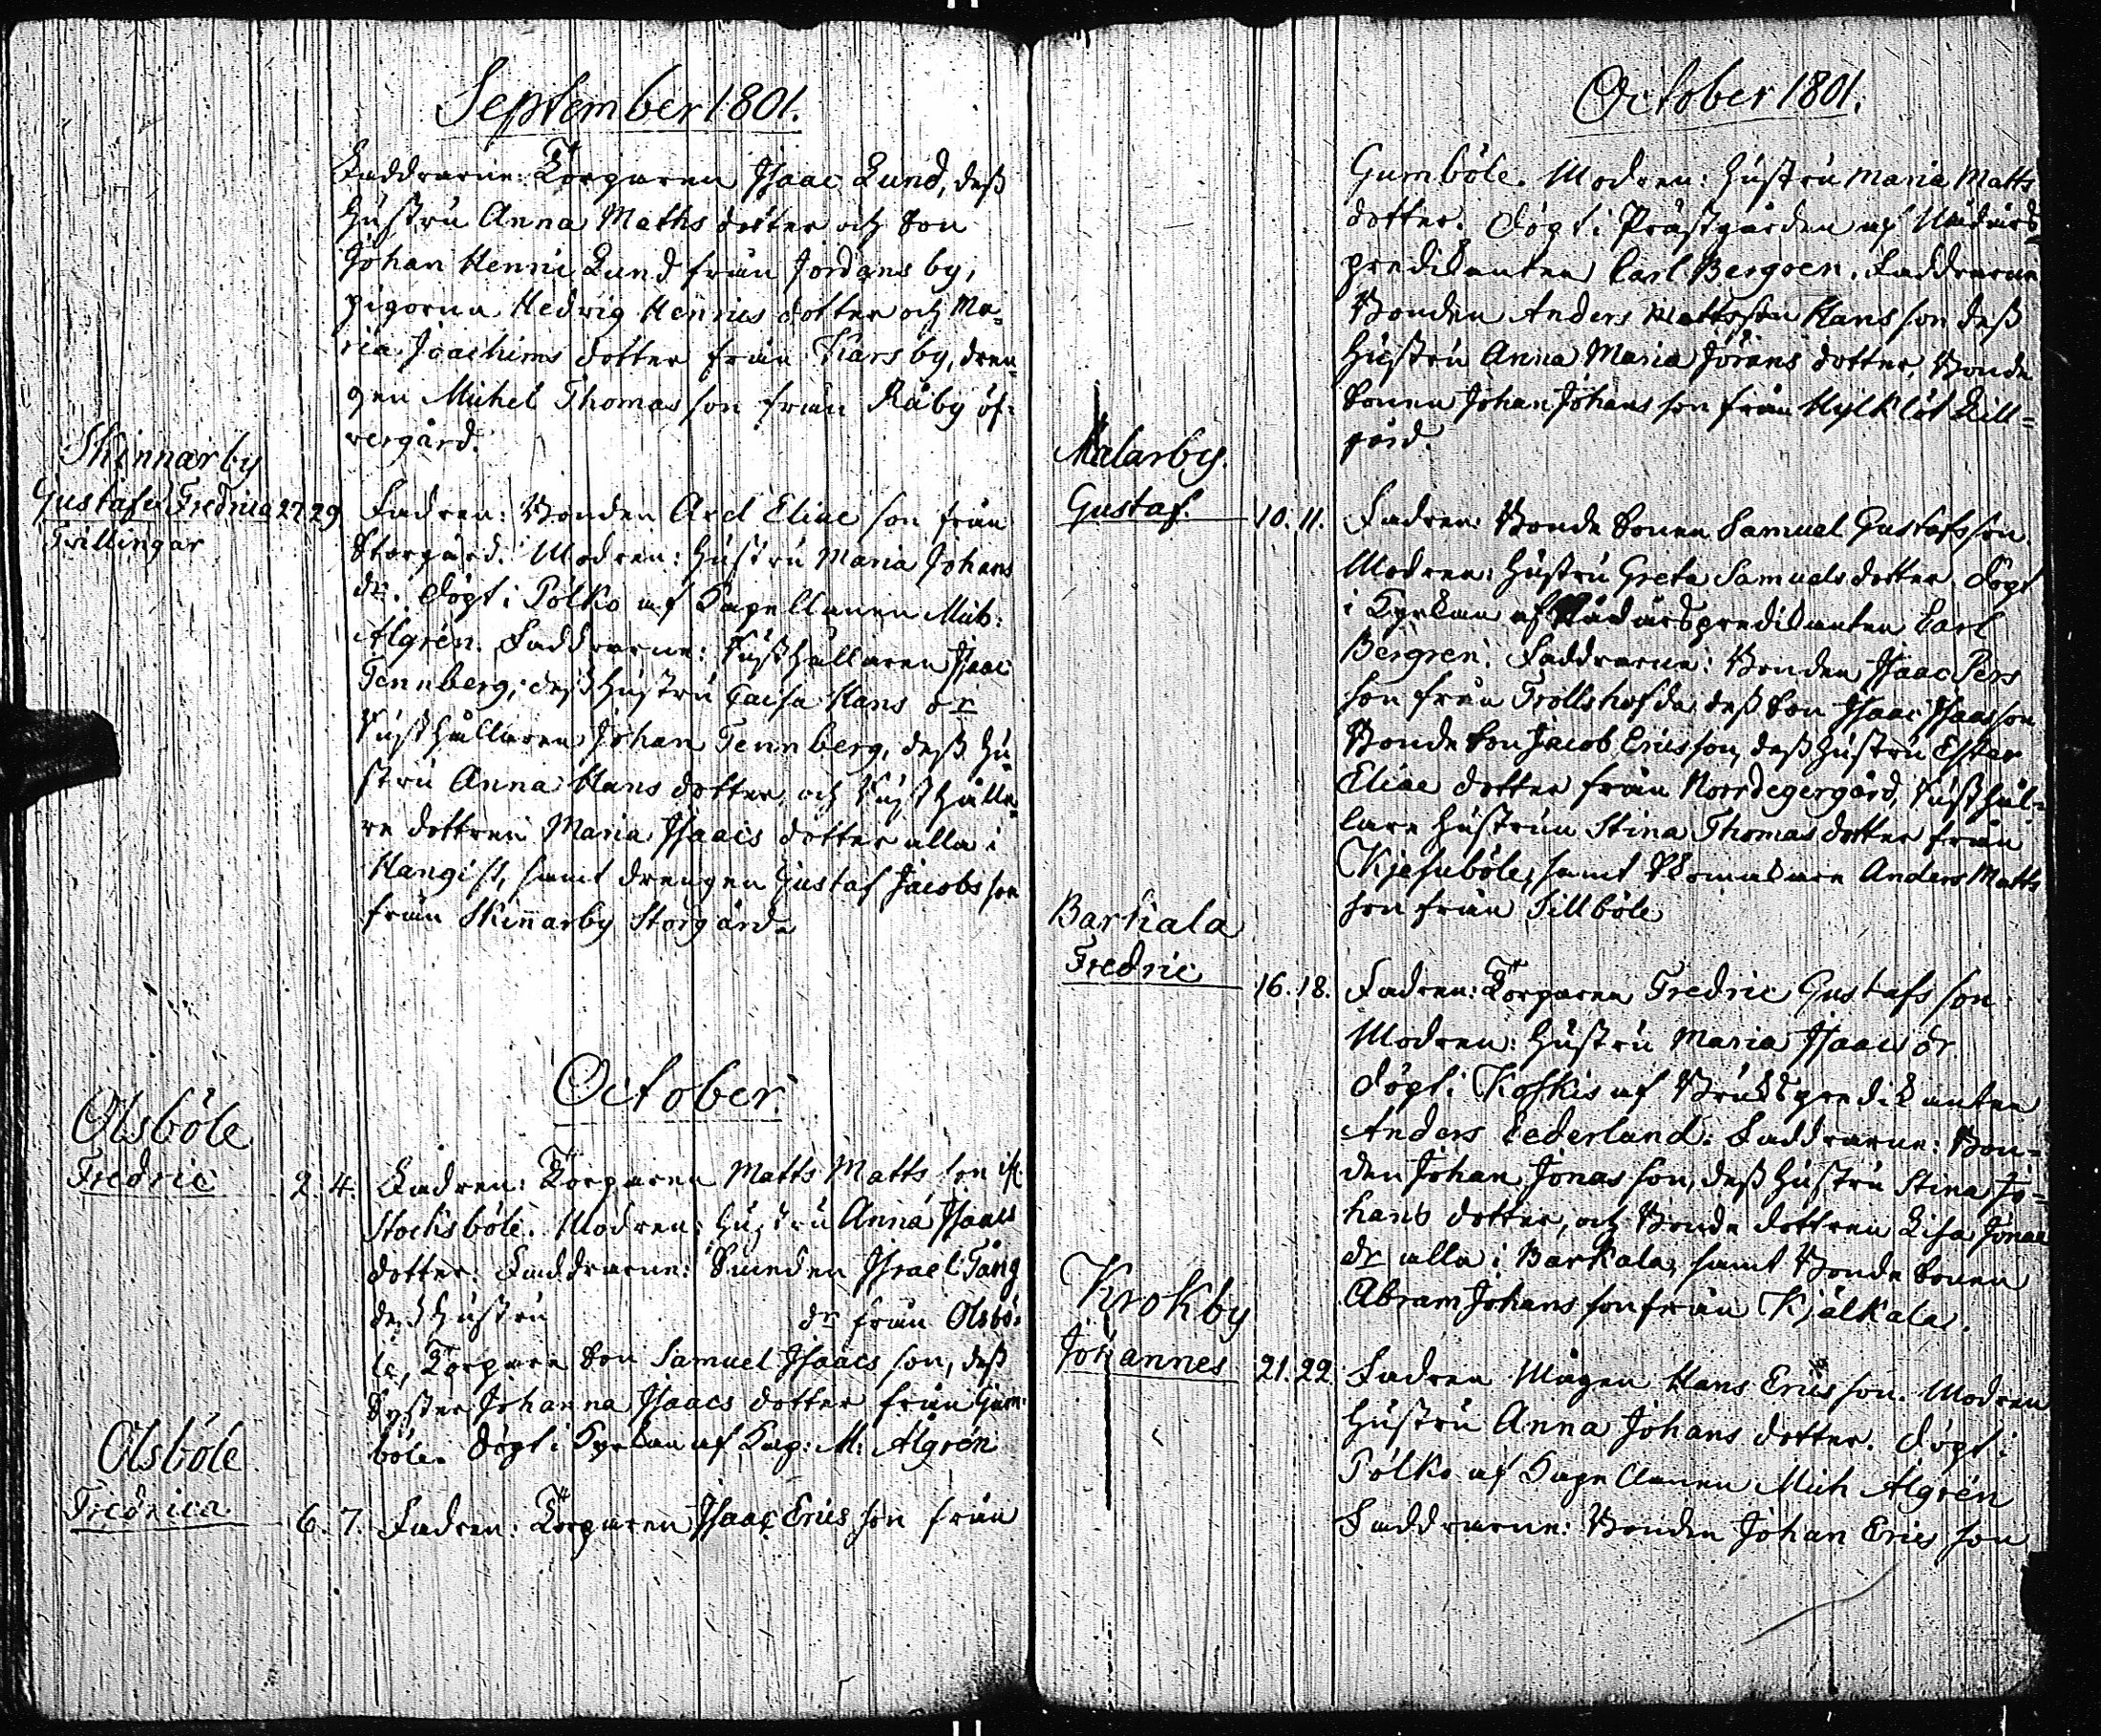 September 1801.
Faddrarne: Torparen Isaac Lund, dess
hustru Anna Matts dotter och Son
Johan Henric Lund från Jordans by,
pigorna Hedvig Henrics dotter och Ma-
ria Joachims dotter från Karsby, dren-
gen Michel Thomas son från Råby öf-
vergård.
Skinnarby
Gustaf u. Fredrica 27. 29.
Tvillingar
Fadren: Bonden Axel Eliae son från
Storgård. Modren: Hustru Maria Johans
dr. döpt i Pölkö af Capellanen Mich:
Algrén. Faddrarne: Rusthållaren Isaac
Tennberg, dess hustru Caisa Hans dr
Rusthållaren Johan Tennberg, dess hu-
stru Anna Hans dotter, och Rusthålla-
re dottren Maria Isaacs dotter alla i
Hangist, samt drengen Gustaf Jacobs son
från Skinnarby Storgård
October
Olsböle
Fredric 2. 4.
Fadren: Torparen Matts Matts son
Stocksböle. Modren: Hustru Anna Isaacs
dotter: Faddrarne: Smeden Israel Tång
dess Hustru dr från Olsbö-
le, Torpare Son Samuel Isaacs son, dess
Syster Johanna Isaacs dotter från Gum-
böle. Döpt i Kyrkan af Cap: M: Algrén
Olsböle
Fredrica 6. 7.
Fadren: Torparen Isaac Erics son från
October 1801.
Gumböle. Modren: Hustru Maria Matts
dotter. Döpt i Prästgården af Nådårs-
predikanten Carl Bergren. Faddrarne
Bonden Anders Mattsson Hans son dess
Hustru Anna Maria Jörans dotter, Bonde
Sonen Johan Johans son från Hylklöt Lill-
gård.
Malarby.
Gustaf. 10. 11.
Fadren: Bonde Sonen Samuel Gustafsson.
Modren: Hustru Greta Samuels dotter. Döpt
i Kyrkan af Nådårspredikanten Carl
Bergren. Faddrarne: Bonden Isaac Pers
son från Trollshofda, dess Son Isaac Isaacsson
Bonde Son Jacob Ericsson, dess Hustru Ester
Eliae dotter från Norrdegergård, Rusthål-
lare Hustrun Stina Thomas dotter från
Kjesuböle, samt Anders Matts
son från Tillböle
Barkala
Fredric 16. 18.
Fadren: Torparen Fredric Gustafs son.
Modren: Hustru Maria Isaacs dr
döpt i Koskis af Brukspredikanten
Anders Cederland. Faddrarne: Bon-
den Johan Jonas son, dess Hustru Stina Jo-
hans dotter, och Bonde dottren Lisa Jonae
dr alla i Barkala, samt Bonde Sonen
Abram Johans son från Kjälkala.
Krokby
Johannes 21. 22.
Fadren Mågen Hans Erics son. Modren
Hustru Anna Johans dotter. Döpt i
Pölkö af Capellanen Mich Algrén
Faddrarne: Bonden Johan Erics son